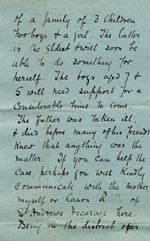 of a family of 3 Children
two boys & a girl. The latter is
the eldest & will soon be
able to do something for
herself. The boys aged 7 &
5 will need support for a
Considerable time to come.
The father was taken ill
& died before many of his friends
knew that anything was the
matter. If you can help the
case perhaps you will kindly
Communicate with the mother
myself or Canon
St Andrews Vicarage Here.
Being in the district